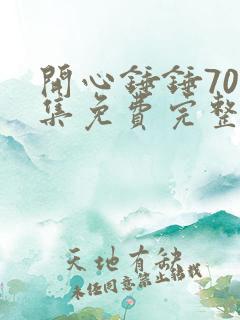 開心錘錘70
集免費完整
天地有缺
未经同意禁止转载